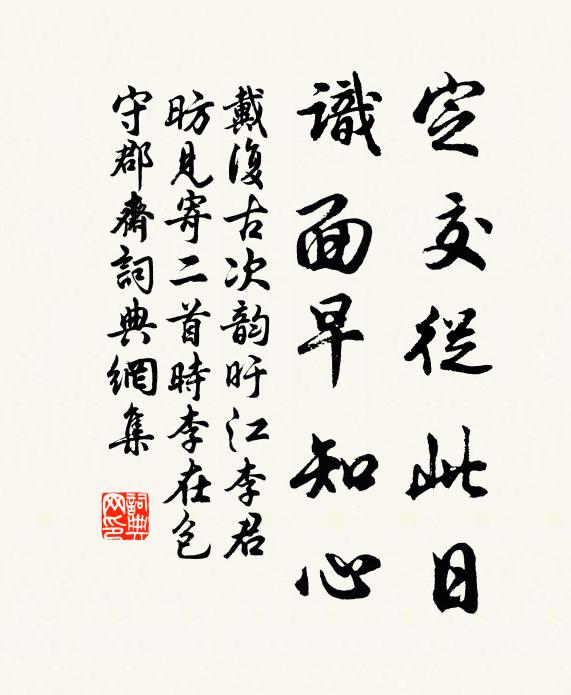 定交從此日
識面早知心
戴復古次韵旴江李君
昉見寄二首時李在包
守郡齋詞典網集
詞典
网印